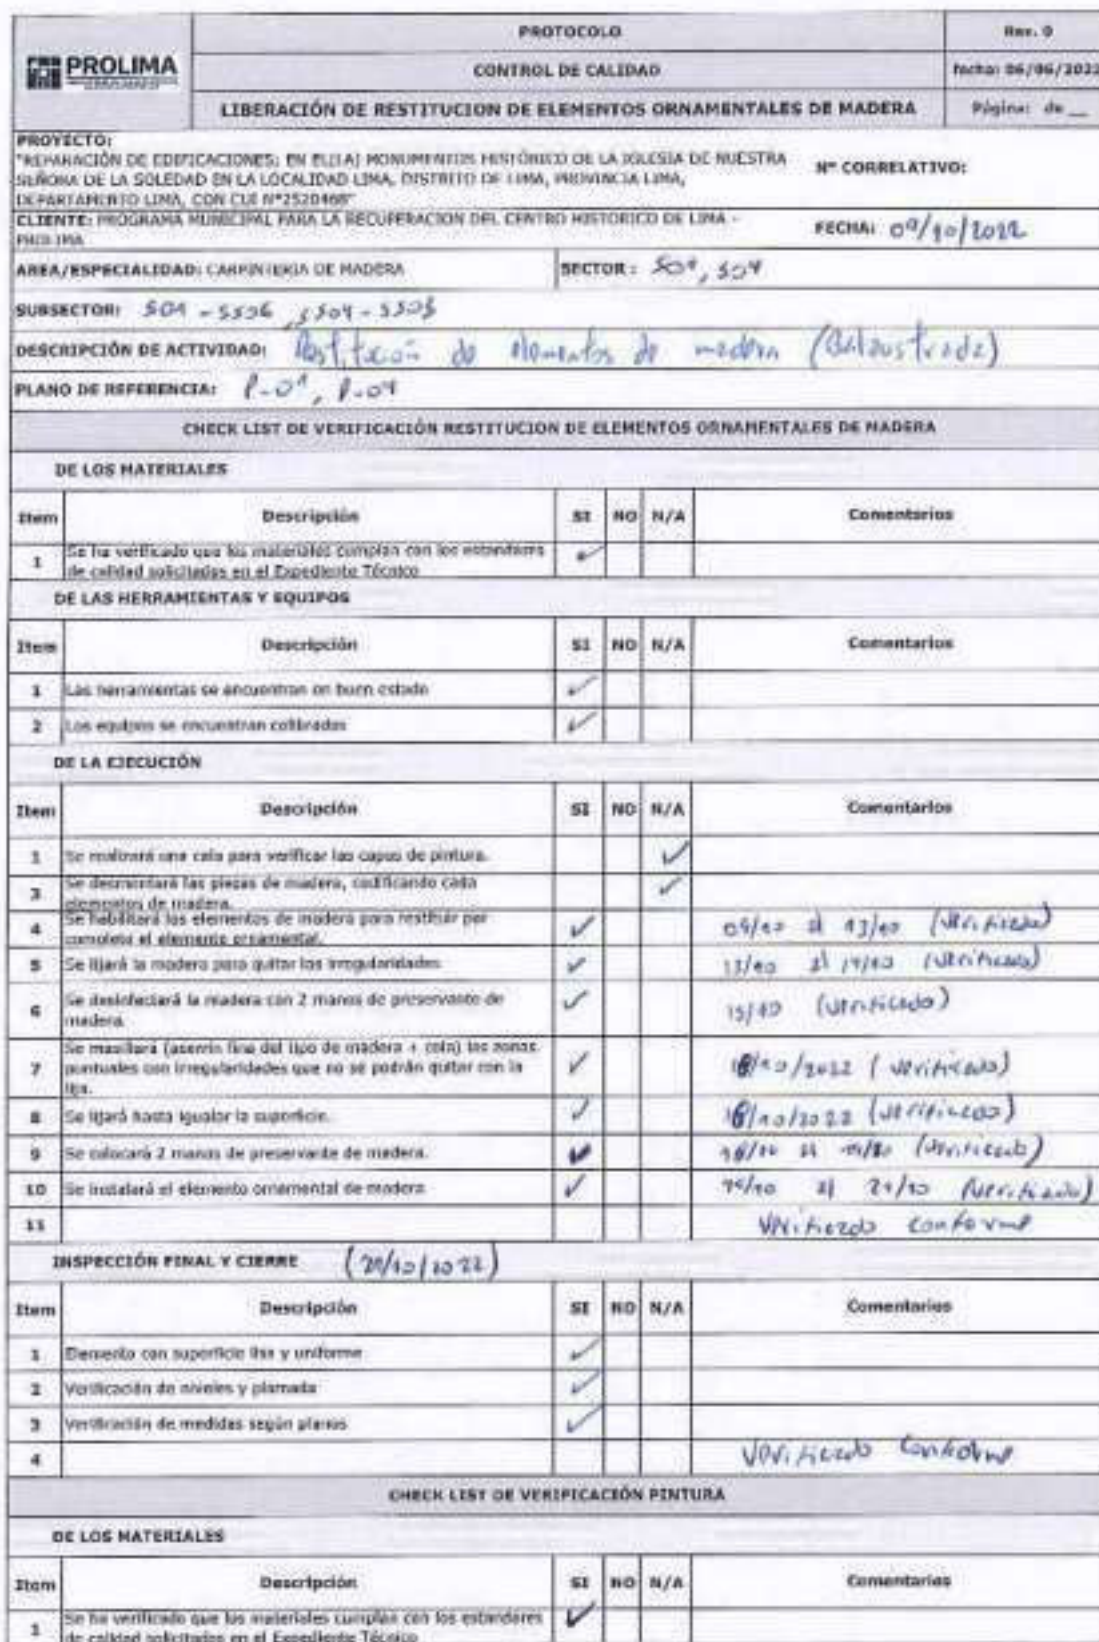 PROLIMA
PROTOCOLO
CONTROL DE CALIDAD
LIBERACIÓN DE RESTITUCION DE ELEMENTOS ORNAMENTALES DE MADERA
Rev. 0
Fecha: 06/06/2022
Página: de __
PROYECTO:
"REPARACIÓN DE EDIFICACIONES; EN EL(LA) MONUMENTOS HISTÓRICO DE LA IGLESIA DE NUESTRA
SEÑORA DE LA SOLEDAD EN LA LOCALIDAD LIMA, DISTRITO DE LIMA, PROVINCIA LIMA,
DEPARTAMENTO LIMA, CON CUI N°2520468"
N° CORRELATIVO:
CLIENTE: PROGRAMA MUNICIPAL PARA LA RECUPERACION DEL CENTRO HISTORICO DE LIMA -
PROLIMA
FECHA: 09/10/2022
AREA/ESPECIALIDAD: CARPINTERIA DE MADERA
SECTOR: S01, S04
SUBSECTOR: S01 - SS06, SS04 - SS03
DESCRIPCIÓN DE ACTIVIDAD: Restitución de elementos de madera (Balaustrada)
PLANO DE REFERENCIA: P-01, P-04
CHECK LIST DE VERIFICACIÓN RESTITUCION DE ELEMENTOS ORNAMENTALES DE MADERA
DE LOS MATERIALES
Item Descripción SI NO N/A Comentarios
1 Se ha verificado que los materiales cumplan con los estandares
de calidad solicitados en el Expediente Técnico ✓
DE LAS HERRAMIENTAS Y EQUIPOS
Item Descripción SI NO N/A Comentarios
1 Las herramientas se encuentran en buen estado ✓
2 Los equipos se encuentran calibrados ✓
DE LA EJECUCIÓN
Item Descripción SI NO N/A Comentarios
1 Se realizará una cala para verificar las capas de pintura. ✓
3 Se desmontará las piezas de madera, codificando cada
elementos de madera. ✓
4 Se habilitará los elementos de madera para restituir por
completo el elemento ornamental. ✓ 09/10 al 13/10 (verificado)
5 Se lijará la madera para quitar las irregularidades ✓ 13/10 al 14/10 (verificado)
6 Se desinfectará la madera con 2 manos de preservante de
madera. ✓ 15/10 (verificado)
7 Se masillará (aserrín fino del tipo de madera + cola) las zonas
puntuales con irregularidades que no se podrán quitar con la
lija. ✓ 18/10/2022 (verificado)
8 Se lijará hasta igualar la superficie. ✓ 18/10/2022 (verificado)
9 Se colocará 2 manos de preservante de madera. ✓ 18/10 al 19/10 (verificado)
10 Se instalará el elemento ornamental de madera ✓ al 21/10 (verificado)
11 Verificado conforme
INSPECCIÓN FINAL Y CIERRE (21/10/2022)
Item Descripción SI NO N/A Comentarios
1 Elemento con superficie lisa y uniforme ✓
2 Verificación de niveles y plomada ✓
3 Verificación de medidas según planos ✓
4 Verificado Conforme
CHECK LIST DE VERIFICACIÓN PINTURA
DE LOS MATERIALES
Item Descripción SI NO N/A Comentarios
1 Se ha verificado que los materiales cumplan con los estandares
de calidad solicitados en el Expediente Técnico ✓